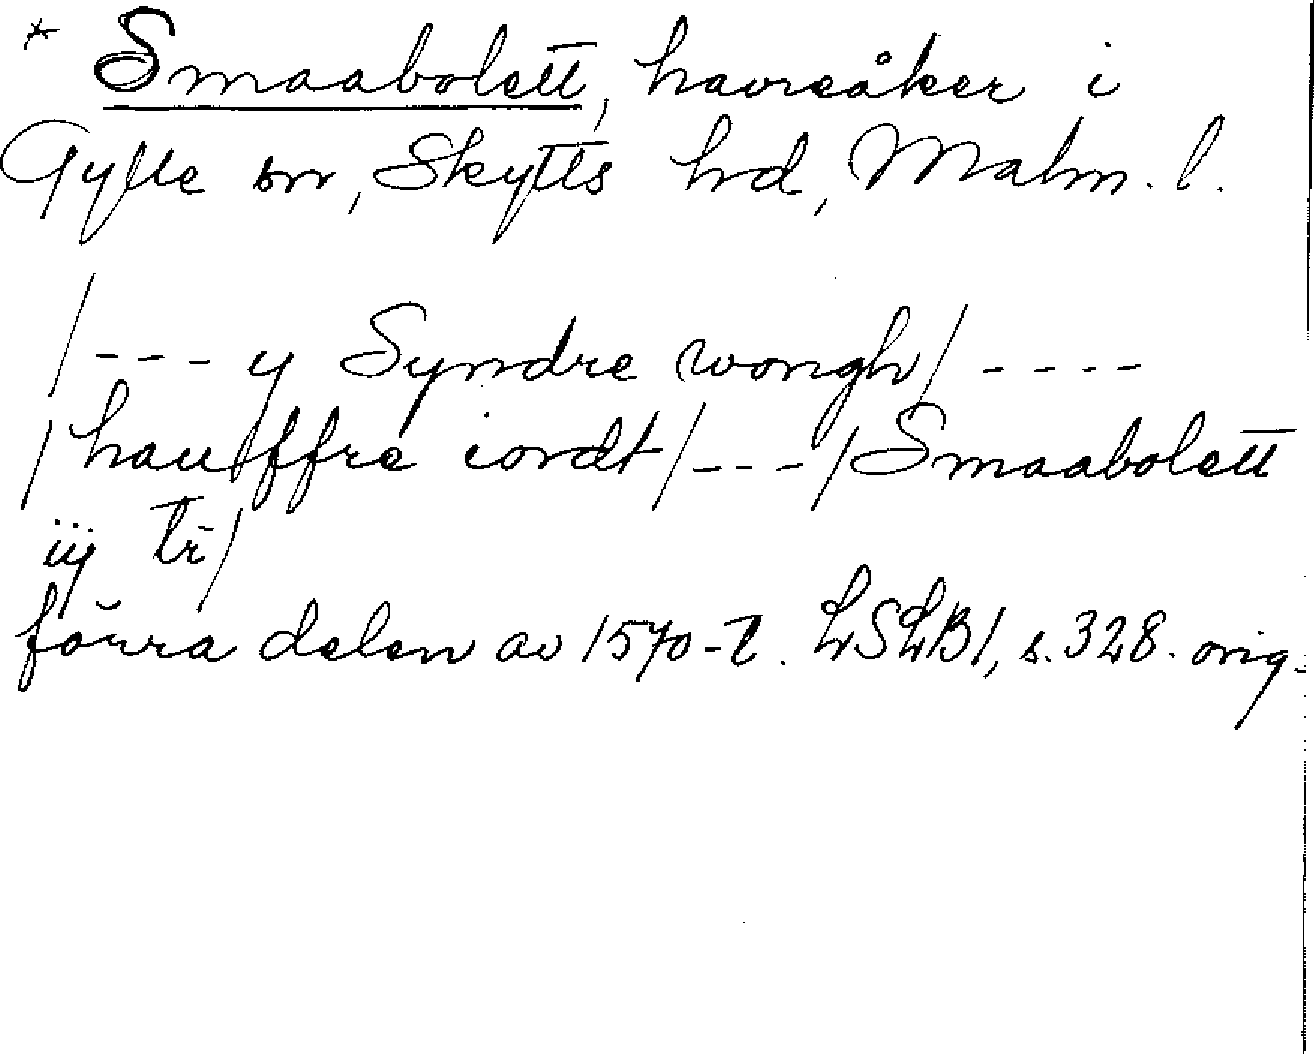 * Smaabolett, havreåker i
Gylle sn, Skytts hd, Malm. l.
/--- y Syndre wongh/ ----
/hauffre iordt/---/Smaabolett
iij tr/
förra delen av 1570-t. LSLB1, s. 328. orig.